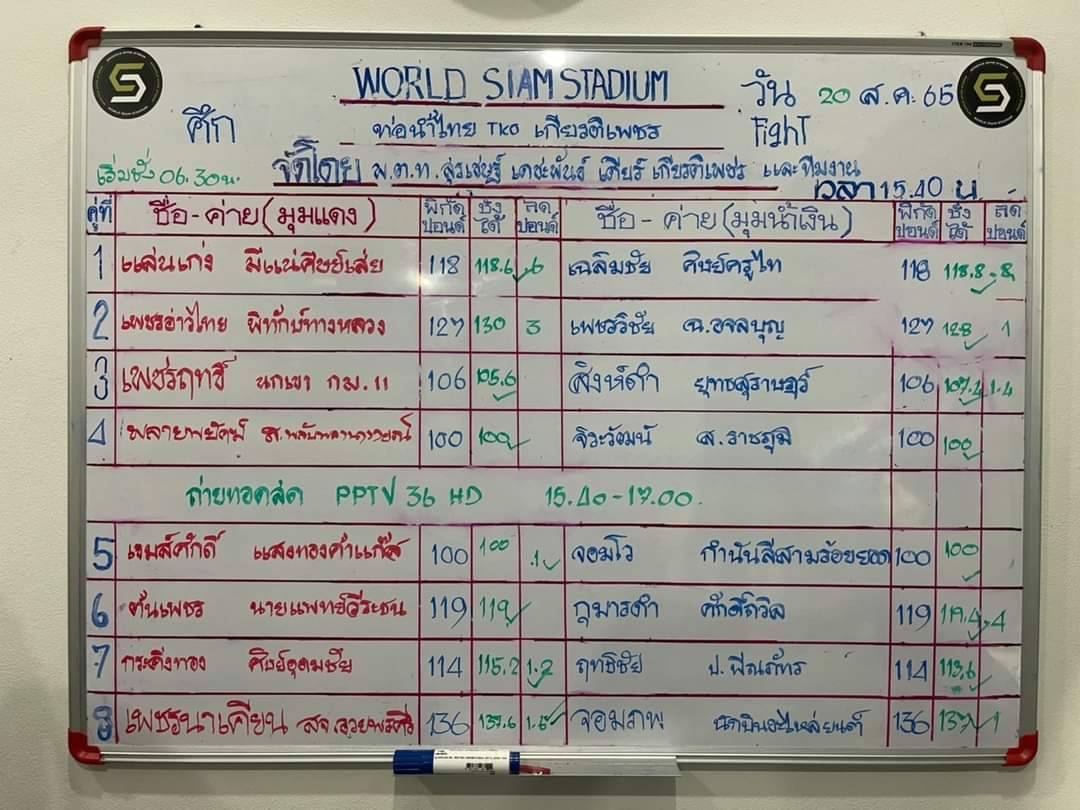 WORLD SIAM STADIUM วัน 20 ส.ค. 65
ศึก ท่อน้ำไทย TKO เกียรติเพชร Fight
เริ่มชั่ง 06.30น. จัดโดย พ.ต.ท. สุรเชษฐ์ เดชะพันธ์ เคียร์ เกียรติเพชร และทีมงาน เวลา 15.40 น
คู่ที่ ชื่อ - ค่าย (มุมแดง) พิกัดปอนด์ ชั่งได้ ลดปอนด์ ชื่อ - ค่าย (มุมน้ำเงิน) พิกัดปอนด์ ชั่งได้ ลดปอนด์
1 แสนเก่ง มีแน่ศิษย์เสี่ย 118 118.6 .6 เฉลิมชัย ศิษย์ครูไก 118 118.8 .8
2 เพชรอ่าวไทย พิทักษ์ทางหลวง 127 130 3 เพชรวิชัย ฉ.อจลบุญ 127 128 1
3 เพชรฤทธิ์ นกเขา กม.11 106 105.6 สิงห์ดำ ยุทธสุราษฎร์ 106 107.4 1.4
4 พลายพยัคฆ์ 100 100 จิระวัฒน์ ส.ราชภูมิ 100 100
ถ่ายทอดสด PPTV 36 HD 15.40-17.00.
5 เจมส์ศักดิ์ แสงทองคำแก๊ส 100 100 .1 จอมโว กำนันสี่สามร้อยยอด 100 100
6 ต้นเพชร นายแพทย์วีระชน 119 119 กุมารดำ ศักดิ์ถวิล 119 119.4 .4
7 กระดิ่งทอง ศิษย์อุดมชัย 114 115.2 1.2 ฤทธิชัย ป.พีณภัทร 114 113.6
8 เพชรนาเคียน สจ.สวยพรศรี 136 137.6 1.6 จอมภพ 136 137 1